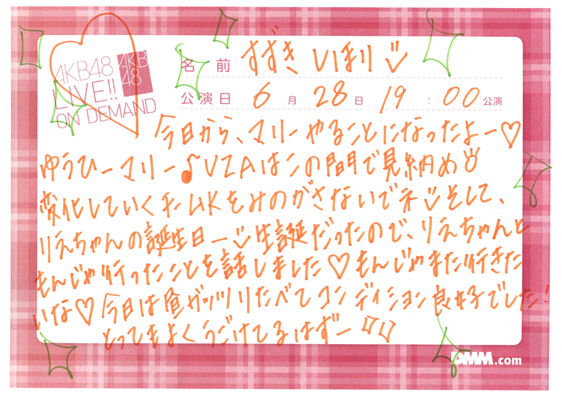 AKB48
LIVE!!
ON DEMAND
AKB
48
名 前 すずき
公演日 6 月 28 日 19 : 00 公演
今日から、マリーやることになったよー♡
ゆうひーマリー♪ VZAはこの間で見納め
変化していくチームKをみのがさないでネ そして、
りえちゃんの誕生日ー 生誕だったので、りえちゃんと
もんじゃ行ったことを話しました♡ もんじゃまた行きた
いな♡ 今日は昼ガッツリたべてコンディション良好でした!
とってもよくうごけてるはずー
DMM.com